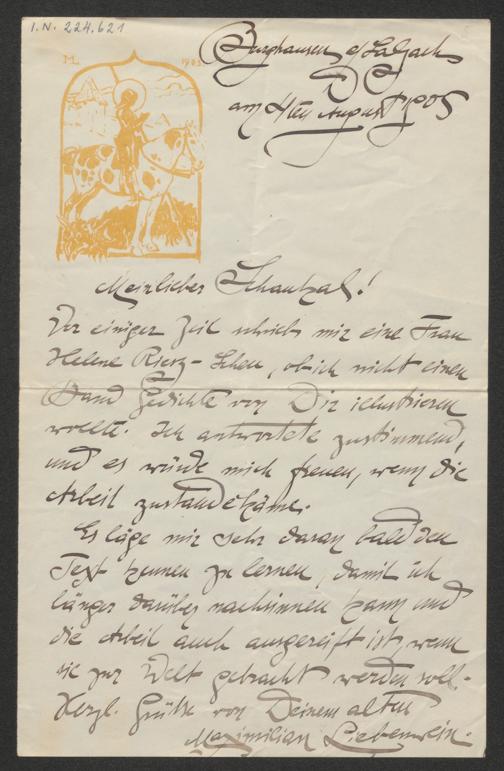 I.N. 224.621
ML 1903
Burghausen a/Salzach
am 4ten August 1905
Mein lieber Schaukal!
Vor einiger Zeit schrieb mir eine Frau
Helene Riesz-Scheu, ob ich nicht einen
Band Gedichte von Dir illustrieren
wollte. Ich antwortete zustimmend,
und es würde mich freuen, wenn die
Arbeit zustande käme.
Es läge mir sehr daran bald den
Text kennen zu lernen, damit ich
länger darüber nachsinnen kann und
die Arbeit auch ausgereift ist, wenn
sie zur Welt gebracht werden soll.
Herzl. Grüße von Deinem alten
Maximilian Liebenwein.